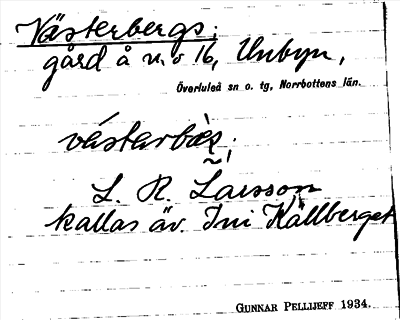 Västerbergs;
gård å n:o 16, Unbyn,
Överluleå sn o. tg, Norrbottens län.
L. R. Larsson
kallas äv. Ini Källberget
GUNNAR PELLIJEFF 1934.